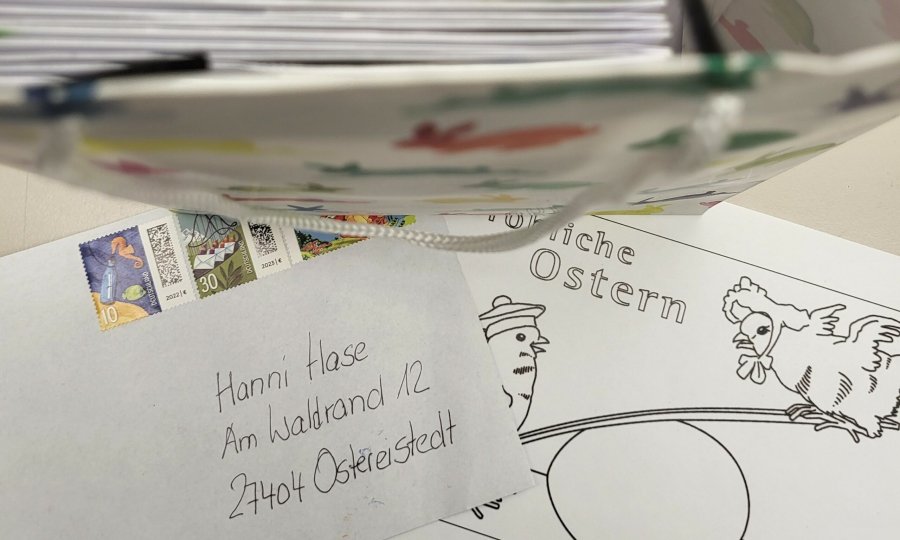 10
DEUTSCHLAND
2022 | €
30
2023 | €
Fröhliche
Ostern
Hanni Hase
Am Waldrand 12
27404 Ostereistedt